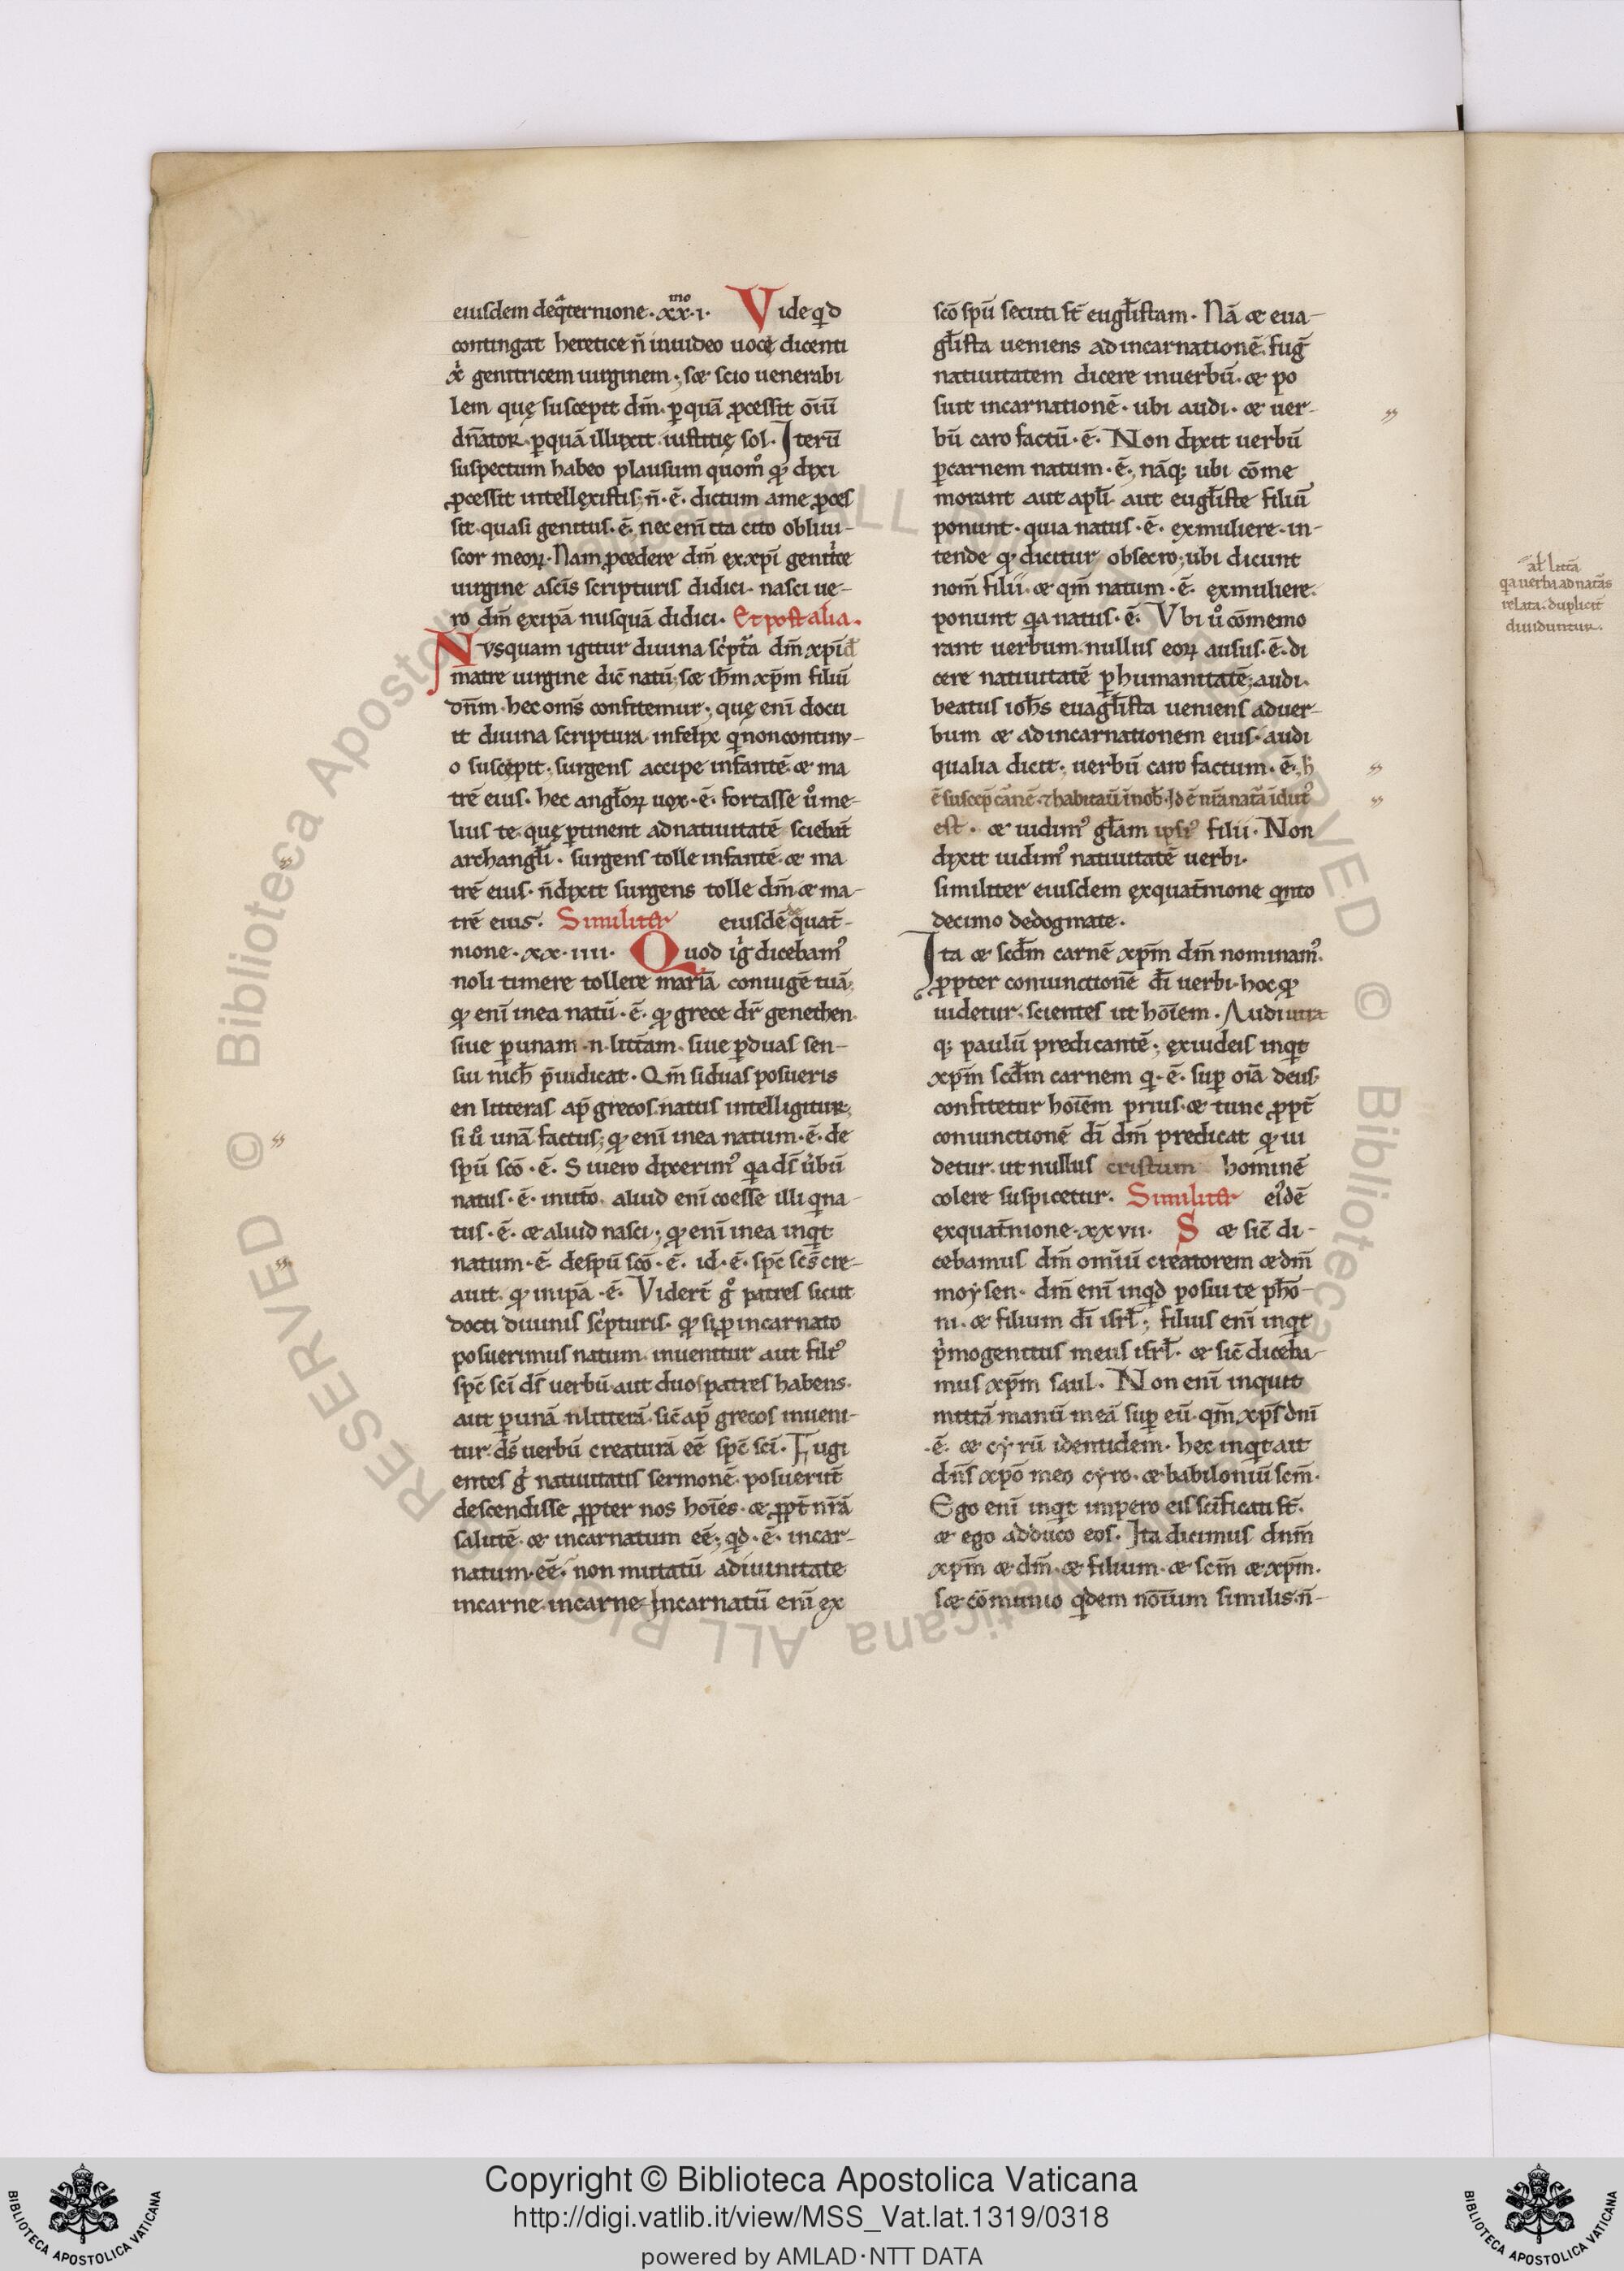 eiusdem de qͣternione · xx·i· ᵐᵒ Vide qͥd
contingat heretice ñ inuideo uocę dicenti
xͥ genitricem uirginem ; sæ scio uenerabi
lem quę suscepit dm̄ · ꝑ quā ꝓcessit oīu
dn̄ator ꝑ quā illuxit iustitię sol · Iterū
suspectum habeo plausum quom̊ qđ dixi
ꝓcessit intellexistis ; ñ · ē · dictum a me ꝓces
sit · quasi genitus · ē · nec enī ita cito obliui-
scor meoꝝ · Nam ꝓcedere dm̄ ex xp̄i genitͥce
uirgine a scīs scripturis didici · nasci ue-
ro dm̄ ex ipā nusquā didici · Et post alia ·
Nvsquam igitur diuina scͥptͣa dm̄ xp̄i đ
matre uirgine dic̄ natū ; sæ ihm̄ xp̄m filiū
dn̄m · hec om̄s confitemur ; quę enī docu
it diuina scriptura · infelix qͥ non continu-
o suscepit ; surgens accipe infantē · æ ma
trē eius · hec angl̄oꝝ uox · ē · fortasse ů me-
lius te · quę ꝑtinent ad natiuitatē sciebāt
archangl̄i · surgens tolle infantē · æ ma
trē eius · ñ dixit surgens tolle dm̄ æ ma-
trē eius · Similiter eiusdē de quat̄-
nione · xx·iiii · Quod igͥ dicebamꝰ
noli timere tollere mariā coniugē tuā ;
qđ enī in ea natū · ē · qđ grece dr̄ genethen ·
siue ꝑ unam · n · litt̄am · siue ꝑ duas sen-
sui nich̄ p̄iudicat · Qm̄ si duas posueris
en litteras ap̄ grecos natus intelligitur ;
si ů unā factus ; qđ enī in ea natum · ē · de
spū sco̅ · ē · Si uero dixerimꝰ qͥa ds̄ uͥbū
natus · ē · in utō · aliud enī coesse illi qͥ na-
tus · ē · æ aliud nasci ; qđ enī in ea inqͥt
natum · ē · de spū sco̅ · ē · id · ē · spc̄ scs̄ cre-
auit · qđ in ipā · ē · Viderr̄ g̊ patres sicut
docti diuinis scͥpturis · qđ si ꝑ incarnato
posuerimus natum · inuenitur aut filiꝰ
spc̄ sci̅ ds̄ uerbū · aut duos patres habens ·
aut ꝑ unā · n · litterā · sic̄ ap̄ grecos inueni-
tur · ds̄ uerbū creaturā eē spc̄ sci̅ · Fugi
entes gͥ natiuitatis sermonē · posuerūt
descendisse ꝓpter nos hoīes · æ ꝓpt̄ nr̄ā
salutē · æ incarnatum eē ; qđ · ē · incar-
natum · eē · non mutatū a diuinitate
in carne · in carne Incarnatū enī ex
sco̅ spū secuti st̄ eugl̄istam · Nā æ eua-
gl̄ista ueniens ad incarnationē · fug̅
natiuitatem dicere in uerbū · æ po
suit incarnationē · ubi audi · æ uer-
bū caro factū · ē · Non dixit uerbū
ꝑ carnem natum · ē · nāq; ubi cōme
morant aut apl̄i aut eugl̄iste filiū
ponunt · quia natus · ē · ex muliere · in-
tende qđ dicitur obsecro ; ubi dicunt
nom̄ filii · æ qm̄ natum · ē · ex muliere ·
ponunt qͥa natus · ē · Vbi ů cōmemo
rant uerbum nullus eoꝝ ausus · ē · di
cere natiuitatē ꝑ humanitatē ; audi ·
beatus ioh̄s euagl̄ista ueniens ad uer-
bum æ ad incarnationem eius · audi
qualia dicit ; uerbū caro factum · ē ·
ē suscep̄
est · æ uidimꝰ gl̄am ipsiꝰ filii · Non
dixit uidimꝰ natiuitatē uerbi ·
similiter eiusdem ex quat̄nione qͥnto
decimo de dogmate ·
Ita æ scd̄m carnē xp̄m dm̄ nominamꝰ ·
ꝓpter coniunctionē di̅ uerbi · hoc qđ
uidetur · scientes ut hoīem · Audi utra
q; paulū predicantē ; ex iudeis inqͥt
xp̄m scd̄m carnem qͥ · ē · suꝑ oīa deus ·
confitetur hoīem prius · æ tunc ꝓpt̄
coniunctionē di̅ dm̄ predicat qđ ui
detur · ut nullus cristum hominē
colere suspicetur · Similiter eiꝰdē
ex quat̄nione · xxvii · S æ sic̄ di-
cebamus dm̄ omīū creatorem æ dm̄
moysen · dm̄ enī inqͥd posui te phō-
ni · æ filium di̅ isrl̄ ; filius enī inqͥt
pͥmogenitus meus isrl̄ · æ sic̄ diceba-
mus xp̄m saul · Non enī inquit
mittā manū meā suꝑ eū · qm̄ xp̄s dn̄i
· ē · æ cyrū identidem · hec inqͥt ait
dn̄s xp̄o meo cyro · æ babiloniū scm̄ ·
Ego enī inqͥt impero eis sc̄ificati st̄ ·
æ ego adduco eos · Ita dicimus dnm̄
xp̄m æ dm̄ · æ filium · æ scm̄ æ xp̄m ·
sæ cōmunio qͥdem noīum similis · ñ-
al̄ littā
qͥa uerba ad natās
relata · duplicit̄
diuiduntur ·
Copyright © Biblioteca Apostolica Vaticana
http://digi.vatlib.it/view/MSS_Vat.lat.1319/0318
powered by AMLAD·NTT DATA
BIBLIOTECA APOSTOLICA VATICANA
BIBLIOTECA APOSTOLICA VATICANA